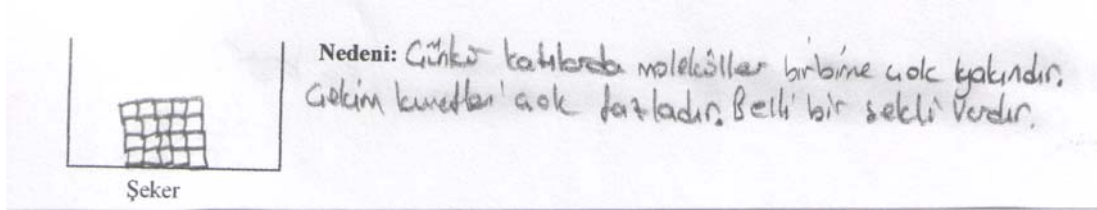 Nedeni: Çünkü katılarda moleküller birbirine çok yakındır.
Çekim kuvvetleri çok fazladır. Belli bir şekli vardır.
Şeker